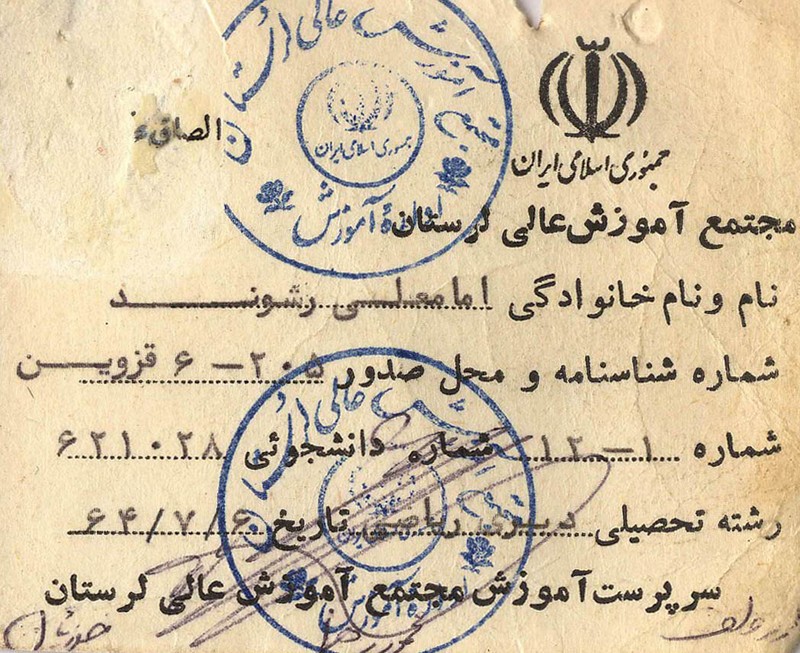 جمهوری اسلامی ایران
مجتمع آموزش عالی لرستان
نام و نام خانوادگی امامعلی رشوند
شماره شناسنامه و محل صدور ۲۰۵ – ۶ قزوین
شماره ۱–۱۲ شماره دانشجوئی ۶۲۱۰۲۸
رشته تحصیلی دبیری ریاضی تاریخ ۶۴/۷/۶
سرپرست آموزش مجتمع آموزش عالی لرستان
مجتمع آموزش عالی لرستان
جمهوری اسلامی ایران
اداره آموزش